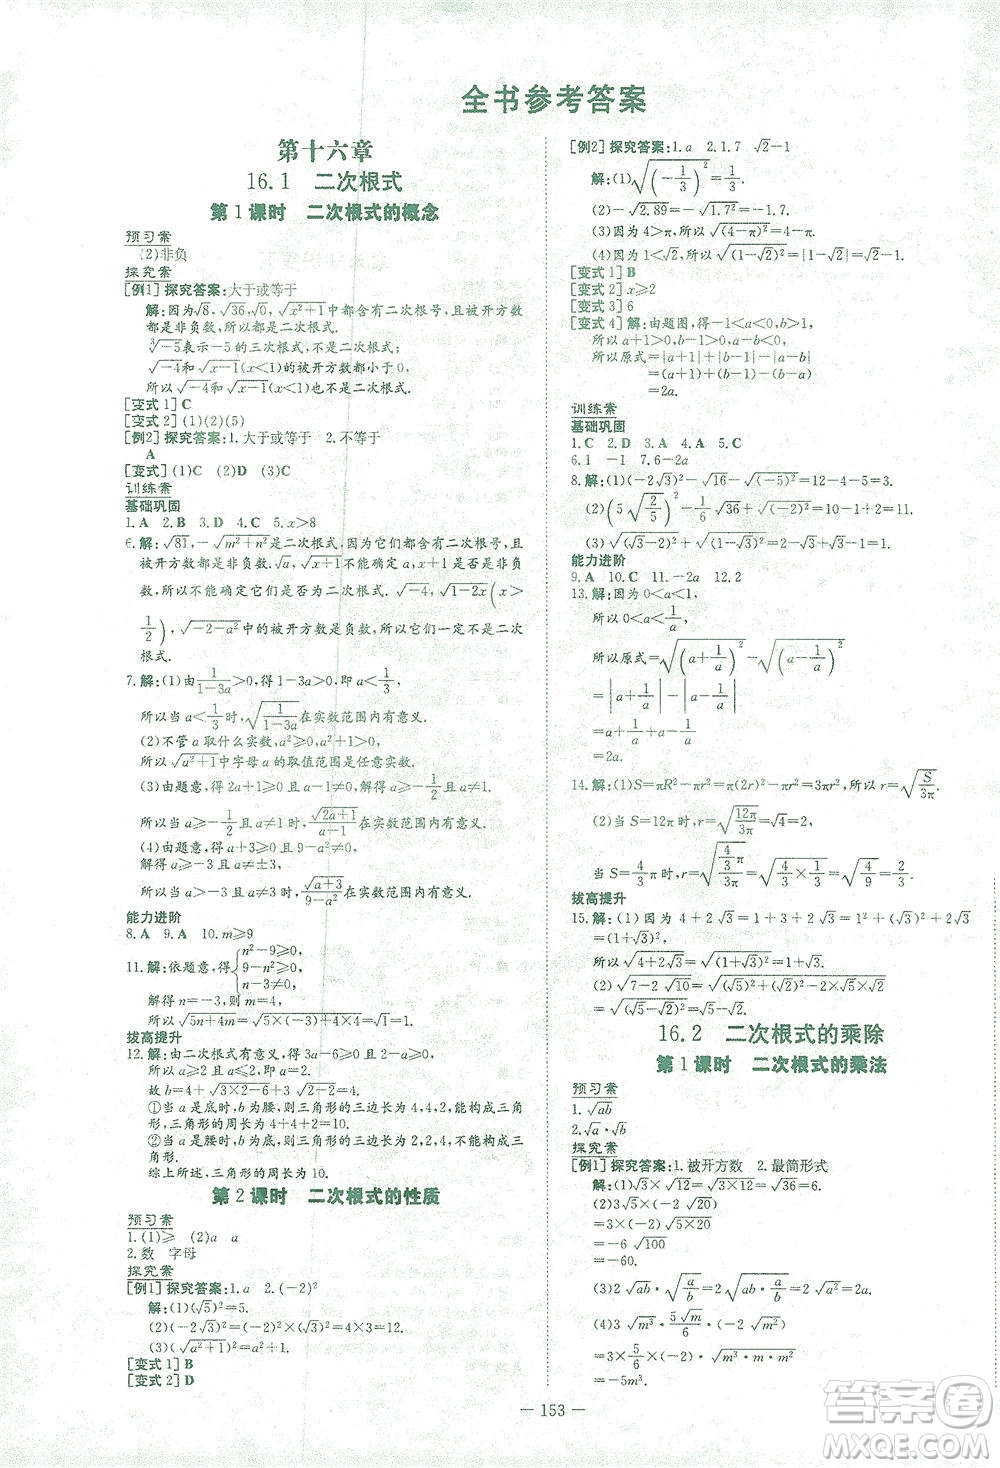 全书参考答案
第十六章
16.1 二次根式
第1课时 二次根式的概念
预习案
(2)非负
探究案
[例1]探究答案:大于或等于
解:因为√8,√36,√0,√(x²+1)中都含有二次根号,且被开方数
都是非负数,所以都是二次根式.
∛-5表示-5的三次根式,不是二次根式.
√-4和√x(x<1)的被开方数都小于0,
所以√-4和√x(x<1)都不是二次根式.
[变式1]C
[变式2](1)(2)(5)
[例2]探究答案:1.大于或等于 2.不等于
A
[变式](1)C (2)D (3)C
训练案
基础巩固
1.A 2.B 3.D 4.C 5.x>8
6.解:√81,-√(m²+n²)是二次根式.因为它们都含有二次根号,且
被开方数都是非负数.√a,√(x+1)不能确定a,x+1是否为非负
数,所以不能确定它们是否为二次根式.√-4,√(1-2x)(x>
1/2),√(-2-a²)中的被开方数是负数,所以它们一定不是二次
根式.
7.解:(1)由1/(1-3a)>0,得1-3a>0,所以a<1/3.
所以当a<1/3时,√(1/(1-3a))在实数范围内有意义.
(2)不管a取什么实数,a²≥0,a²+1>0,
所以√(a²+1)中字母a的取值范围是任意实数.
(3)由题意,得2a+1≥0,a-1≠0,解得a≥-1/2且a≠1,
所以当a≥-1/2且a≠1时,√(2a+1)/(a-1)在实数范围内有意义.
(4)由题意,得a+3≥0,|a|-3≠0,
解得a≥-3且a≠±3,
所以当a>-3且a≠3时,√(a+3)/(|a|-3)在实数范围内有意义.
能力进阶
8.A 9.A 10.m≥9
11.解:依题意,得{n²-9≥0, 9-n²≥0, n-3≠0,
解得n=-3,则m=4,
所以√(5n+4m)=√(5×(-3)+4×4)=√1=1.
拔高提升
12.解:由二次根式有意义的条件,得3a-6≥0,2-a≥0,
所以a≥2,a≤2,所以a=2.
故b=√(3×2-6)+√(2-2)+4=4.
①当a是底时,b为腰,则三角形的三边长为4,4,2,能构成三
角形,三角形的周长为4+4+2=10;
②当a是腰时,b为底,则三角形的三边长为2,2,4,不能构成
三角形.
综上所述,三角形的周长为10.
第2课时 二次根式的性质
预习案
1.(1)≥ (2)a a
2.数 字母
探究案
[例1]探究答案:1.a 2.(-2)²
解:(1)(√5)²=5.
(2)(-2√3)²=(-2)²×(√3)²=4×3=12.
(3)(√(a²+1))²=a²+1.
[变式1]B
[变式2]D
[例2]探究答案:1.a 2.1.7 √2-1
解:(1)√(-1/3)²=|-1/3|=1/3.
(2)-√2.89=-√1.7²=-1.7.
(3)因为4>π,所以√(4-π)²=4-π.
(4)因为1<√2,所以√(1-√2)²=|1-√2|=√2-1.
[变式1]B
[变式2]x≥2
[变式3]6
[变式4]解:由题图,得-1<a<0,b>1,
所以a+1>0,b-1>0,a-b<0,
所以原式=|a+1|+|b-1|-|a-b|
=(a+1)+(b-1)+(a-b)
=2a.
训练案
基础巩固
1.C 2.D 3.B 4.A 5.C
6.1 -1 7.6-2a
8.解:(1)(-2√3)²-√16-√(-5)²=12-4-5=3.
(2)(5√(2/5))²-1/6√36+√(-2)²=10-1+2=11.
(3)√(√3-2)²+√(1-√3)²=2-√3+(√3-1)=1.
能力进阶
9.A 10.C 11.-2a 12.2
13.解:因为0<a<1,
所以0<a<1/a,
所以原式=√(a+1/a)²-√(a-1/a)²
=|a+1/a|-|a-1/a|
=a+1/a-1/a+a
=2a.
14.解:(1)S=πR²-πr²=π(2r)²-πr²=3πr²,所以r=√(S/3π).
(2)当S=12π时,r=√(12π/3π)=√4=2,
当S=4/3π时,r=√(4/3π/3π)=√(4/3/3)=√(4/9)=2/3.
拔高提升
15.解:(1)因为4+2√3=1+3+2√3=1²+(√3)²+2√3
=(1+√3)²,
所以√(4+2√3)=√(1+√3)²=1+√3.
(2)√(7-2√10)=√((√5)²+(√2)²-2×√5×√2)
=√(√5-√2)²=√5-√2.
16.2 二次根式的乘除
第1课时 二次根式的乘法
预习案
1.√ab
2.√a·√b
探究案
[例1]探究答案:1.被开方数 2.最简形式
解:(1)√3×√12=√(3×12)=√36=6.
(2)3√5×(-2√20)
=3×(-2)√(5×20)
=-6√100
=-60.
(3)2√ab·√(a/b)=2√(ab·a/b)=2√a²=2a.
(4)3√m³·5√m/6·(-2√m²)
=3×5/6×(-2)√(m³·m·m²)
=-5m³.
— 153 —
答案圈
MXQE.COM